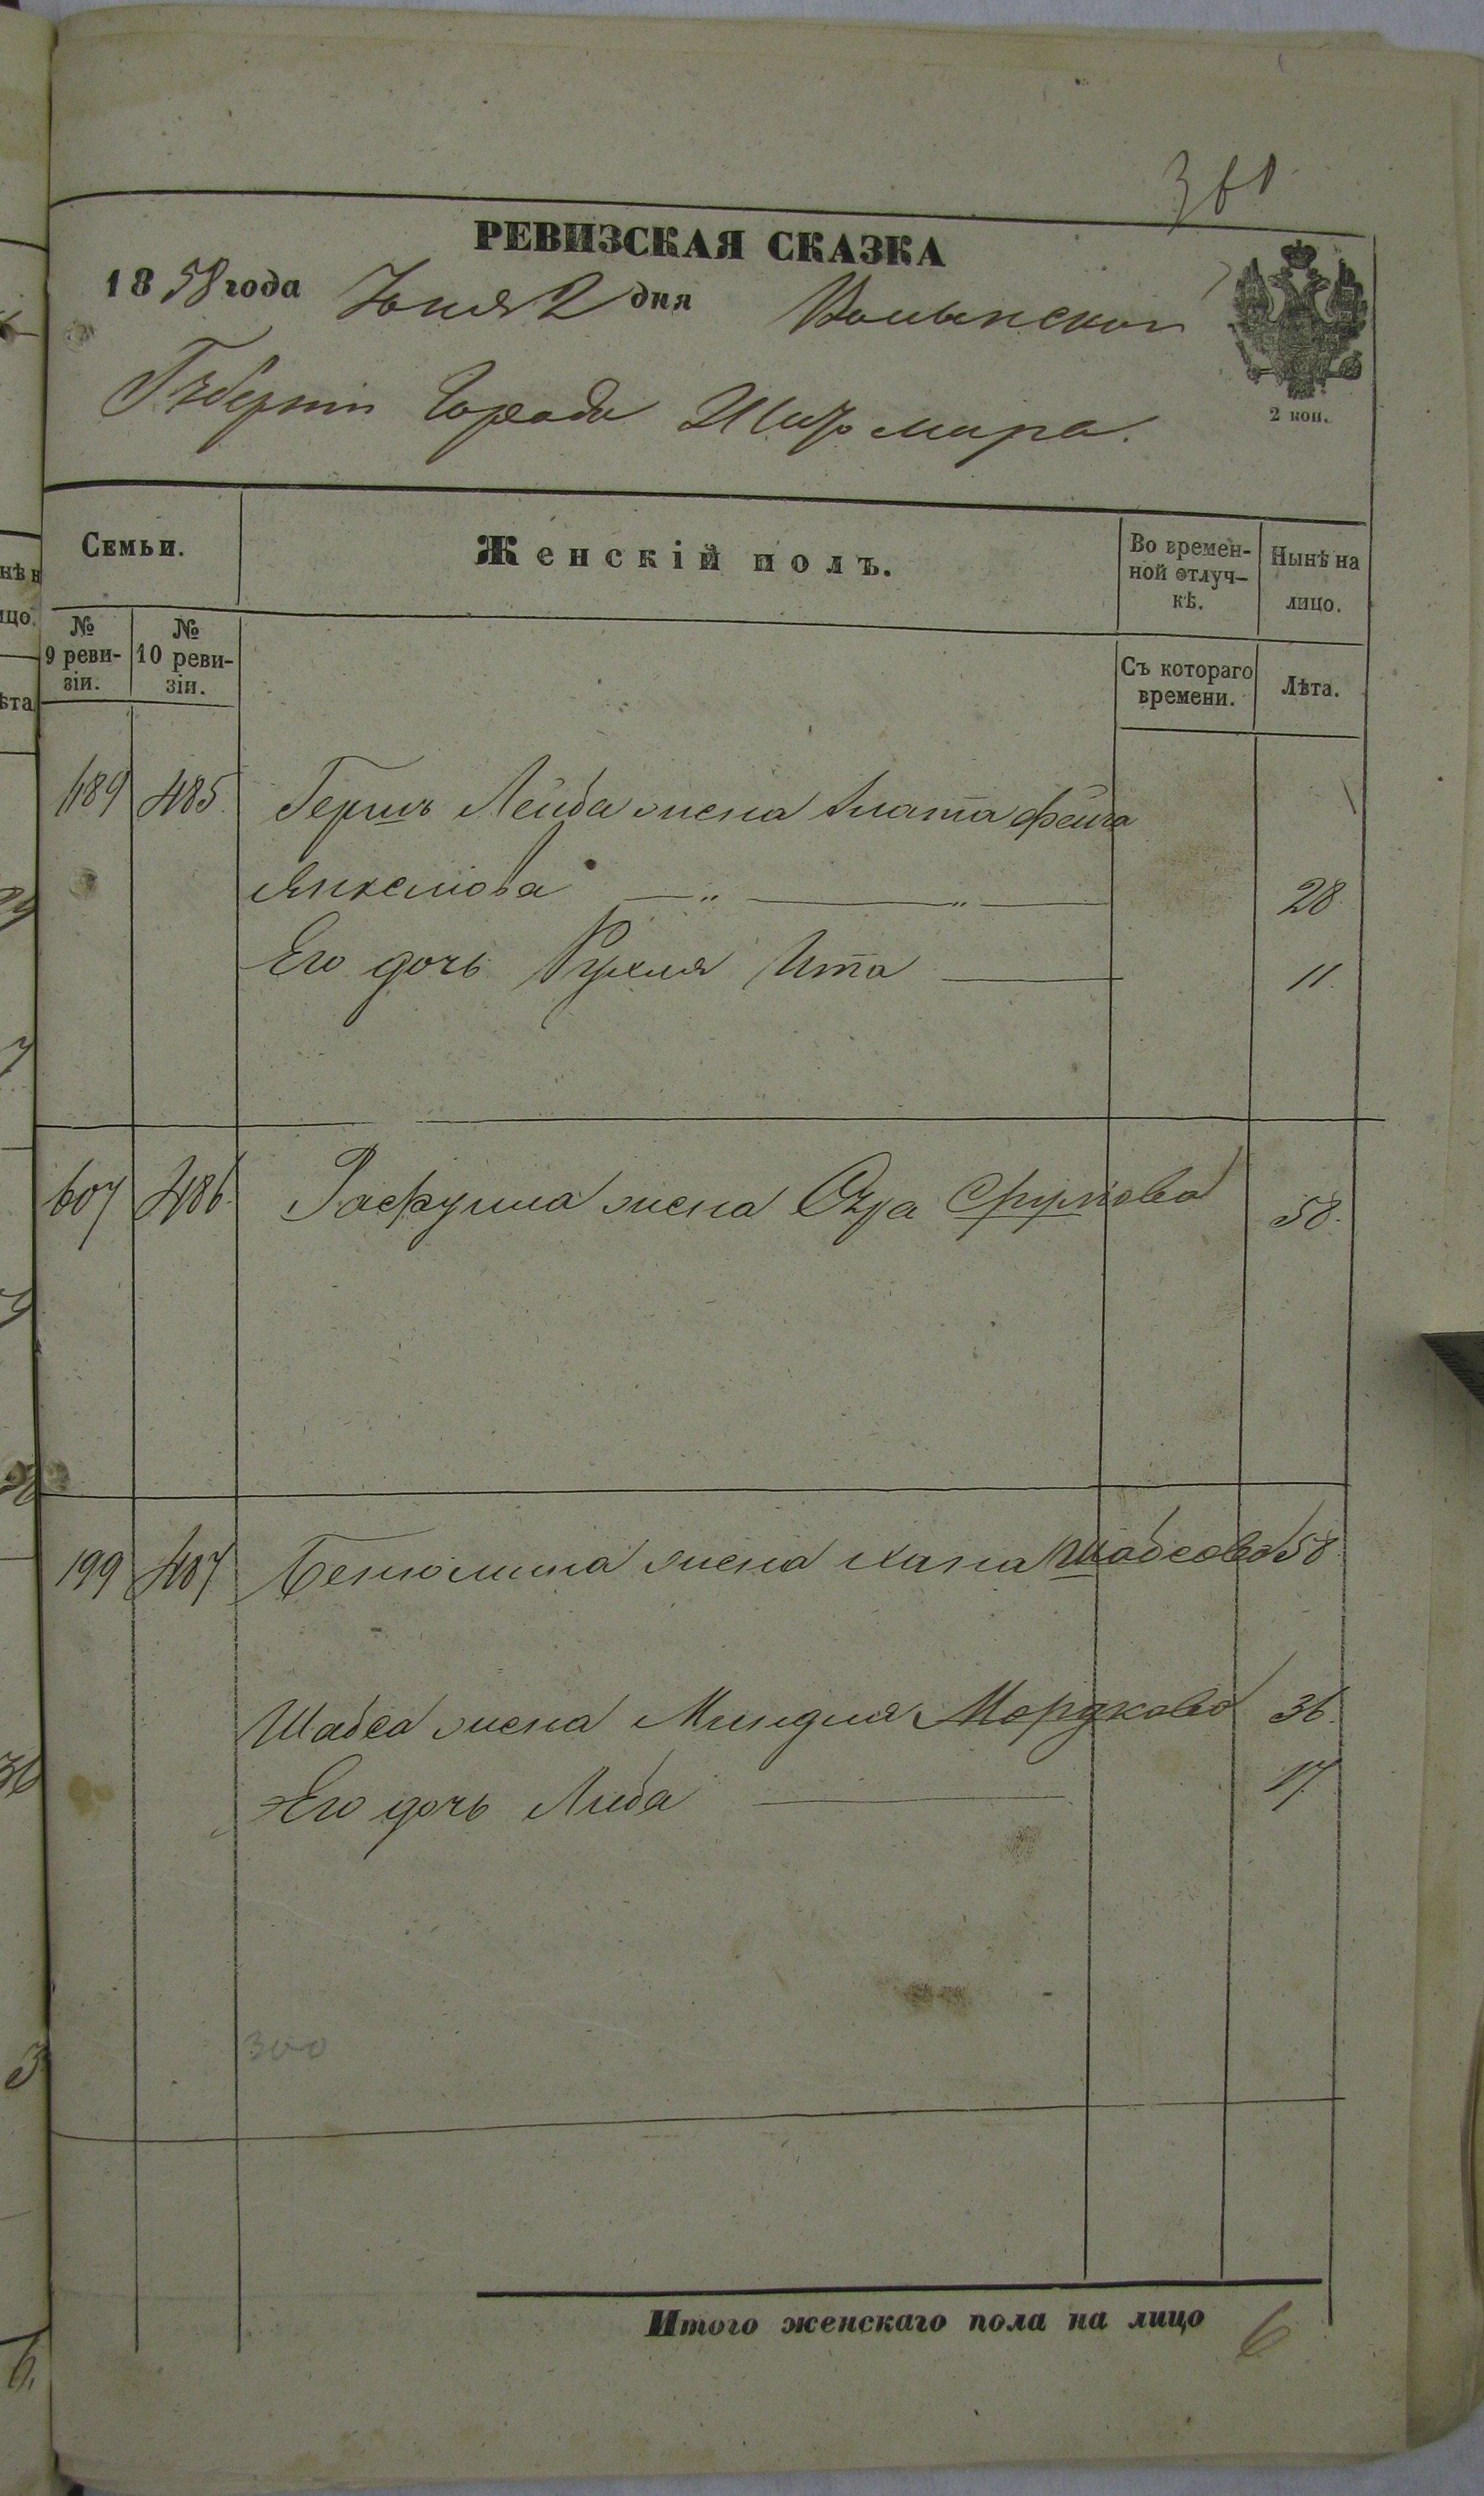 РЕВИЗСКАЯ СКАЗКА
1858 года Юня 2 дня Волынской
Губерніи Города Житомира.
2 коп.
Семьи.
Женскій полъ.
Во времен-
ной отлуч-
кѣ.
Нынѣ на
лицо.
№
9 реви-
зіи.
№
10 реви-
зіи.
Съ котораго
времени.
Лѣта.
489 485. Гершъ Лейба жена Злата Фейга
Янкелова 28.
Его дочь Рухля Ита 11.
607 486. жена 58.
199 487 Бенюмина жена Хана Шабсова 58
Шабса жена Миндля Мордкова 36.
Его дочь Либа 17.
300
Итого женскаго пола на лицо 6